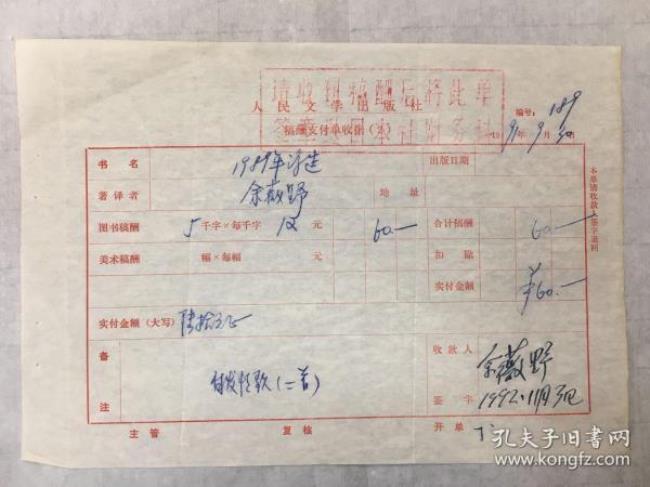 请收到稿酬后将此单
签章退回本社财务科
人民文学出版社
稿酬支付单收据
编号: 189
1991年9月30日
书名 1989年诗选 出版日期
著译者 余薇野 地址
图书稿酬 5千字×每千字12元 60.— 合计稿酬 60.—
美术稿酬 幅×每幅 元 扣除
实付金额 ¥60.—
实付金额(大写) 陆拾元正
备注 (二首) 收款人 余薇野
签字 1992.11月3日
主管 复核 开单
本单请收款人签字退回
孔夫子旧书网
www.kongfz.com